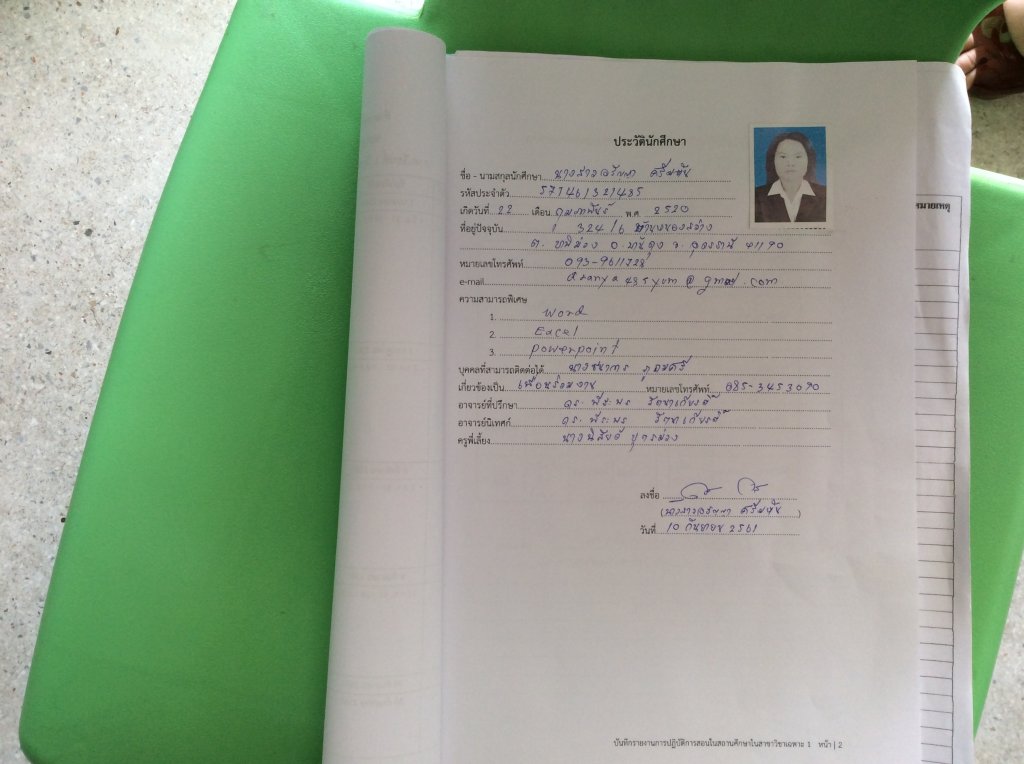 ประวัตินักศึกษา
ชื่อ - นามสกุลนักศึกษา นางสาวอรัญญา
รหัสประจำตัว 57146321435
เกิดวันที่ 22 เดือน กุมภาพันธ์ พ.ศ. 2520
ที่อยู่ปัจจุบัน 324/6
ต. อ. จ. อุดรธานี 41190
หมายเลขโทรศัพท์ 093-
e-mail aranya435yum@gmail.com
ความสามารถพิเศษ
1. Word
2. Excel
3. Powerpoint
บุคคลที่สามารถติดต่อได้ ภูมมศรี
เกี่ยวข้องเป็น เพื่อนร่วมงาน หมายเลขโทรศัพท์ 085-3453090
อาจารย์ที่ปรึกษา ดร. พีระพร รัตนาเกียรติ์
อาจารย์นิเทศก์ ดร. พีระพร รัตนาเกียรติ์
ครูพี่เลี้ยง
ลงชื่อ
(นางสาวอรัญญา )
วันที่ 10 กันยายน 2561
หมายเหตุ
บันทึกรายงานการปฏิบัติการสอนในสถานศึกษาในสาขาวิชาเฉพาะ 1 หน้า | 2